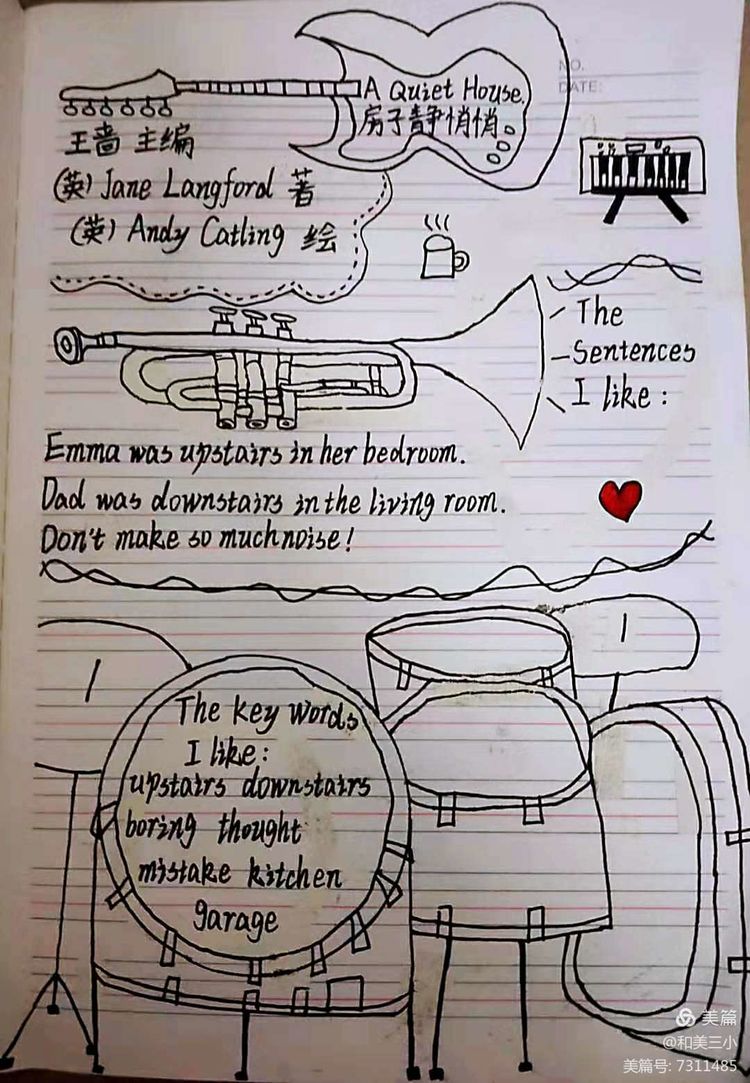 A Quiet House.
房子静悄悄
NO.
DATE:
王蔷 主编
(英) Jane Langford 著
(英) Andy Catling 绘
The
Sentences
I like:
Emma was upstairs in her bedroom.
Dad was downstairs in the living room.
Don't make so much noise!
The key words
I like:
upstairs downstairs
boring thought
mistake kitchen
garage
美篇
@和美三小
美篇号: 7311485